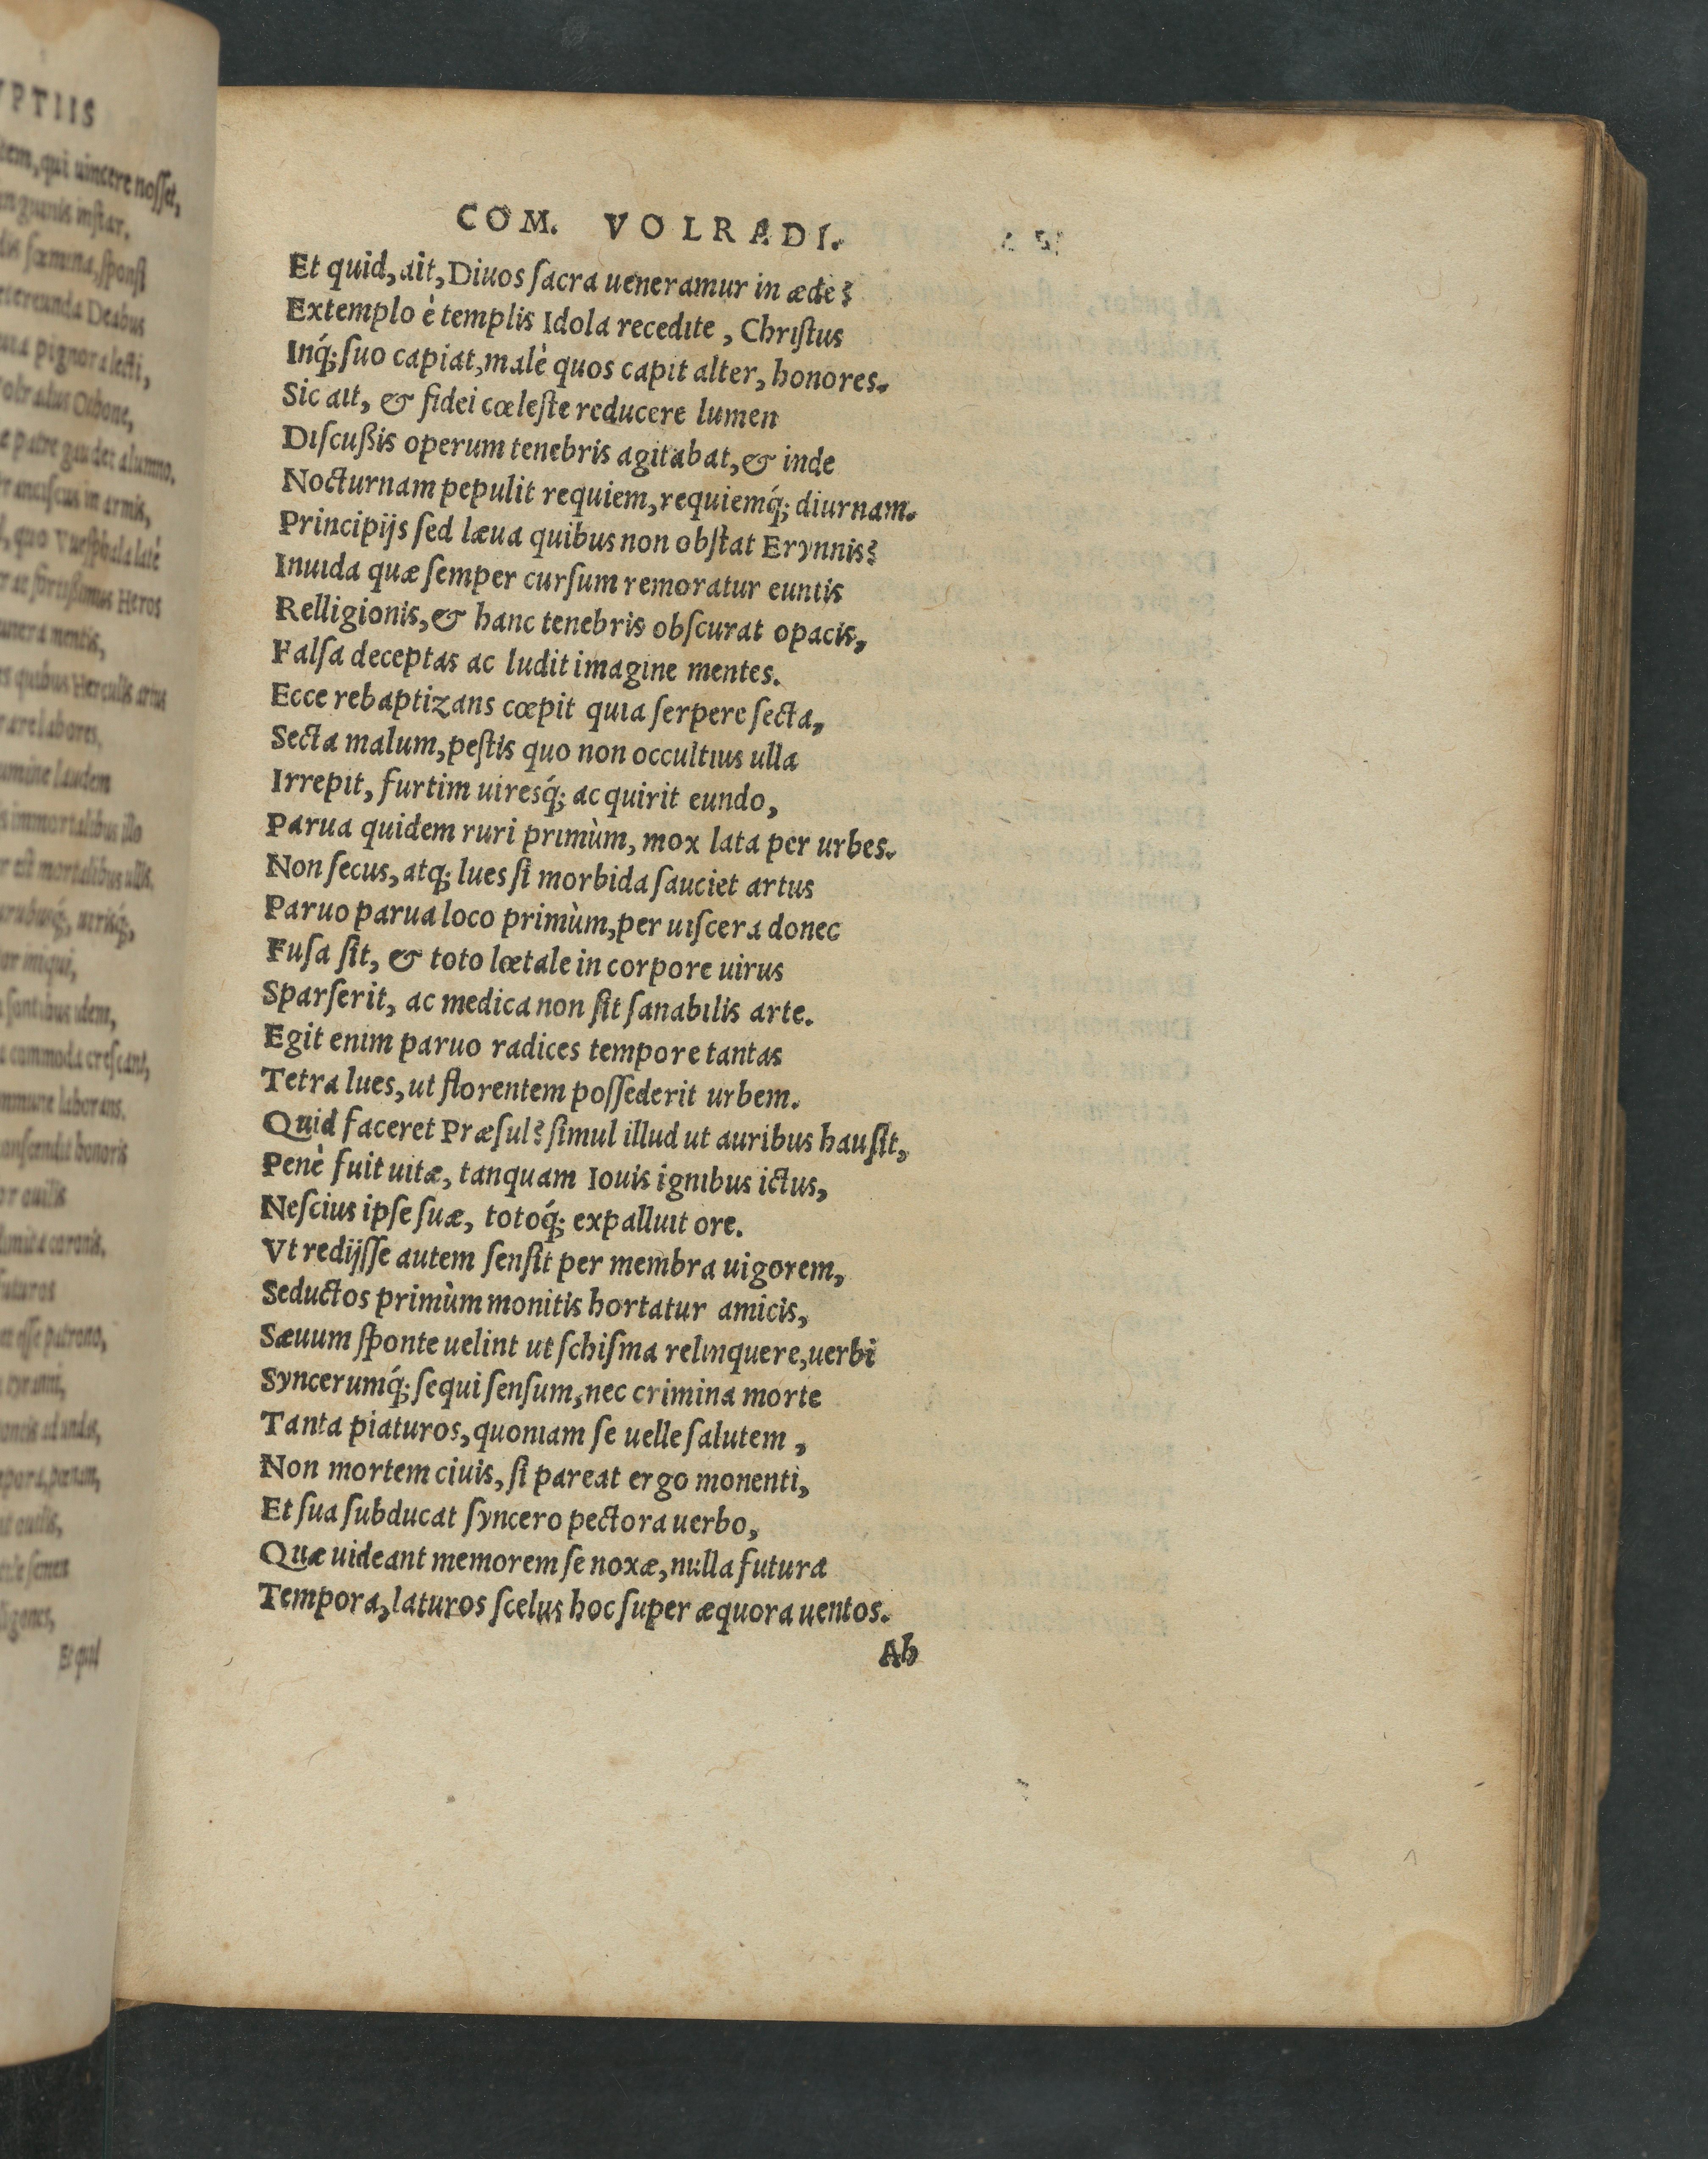 VPTIIS
tem, qui uincere noſſet,
instar.
fœmina, ſponſi
Deabus
pignora lecti,
Othone,
patre gaudet alumno,
in armis,
quo Vueſtphala latè
Heros
mentis,
quibus Herculis
labores,
laudem
immortalibus illo
est mortalibus ullis.
iniqui,
ſontibus idem,
commoda creſcant,
laborans.
honoris
futuros
eſſe patrono,
tyranni,
Et quid
COM. VOLRADI.
Et quid, ait, Diuos ſacra ueneramur in æde?
Extemplo è templis Idola recedite, Chriſtus
Inq́; ſuo capiat, malè quos capit alter, honores.
Sic ait, & fidei cœleſte reducere lumen
Diſcußis operum tenebris agitabat, & inde
Nocturnam pepulit requiem, requiemq́; diurnam.
Principijs ſed læua quibus non obſtat Erynnis?
Inuida quæ ſemper curſum remoratur euntis
Relligionis, & hanc tenebris obſcurat opacis,
Falſa deceptas ac ludit imagine mentes.
Ecce rebaptizans cœpit quia ſerpere ſecta,
Secta malum, peſtis quo non occultius ulla
Irrepit, furtim uiresq́; acquirit eundo,
Parua quidem ruri primùm, mox lata per urbes.
Non ſecus, atq; lues ſi morbida ſauciet artus
Paruo parua loco primùm, per uiſcera donec
Fuſa ſit, & toto lœtale in corpore uirus
Sparſerit, ac medica non ſit ſanabilis arte.
Egit enim paruo radices tempore tantas
Tetra lues, ut florentem poſſederit urbem.
Quid faceret Præſul? ſimul illud ut auribus hauſit,
Penè fuit uitæ, tanquam Iouis ignibus ictus,
Neſcius ipſe ſuæ, totoq́; expalluit ore.
Vt redijſſe autem ſenſit per membra uigorem,
Seductos primùm monitis hortatur amicis,
Sæuum ſponte uelint ut ſchiſma relinquere, uerbi
Syncerumq́; ſequi ſenſum, nec crimina morte
Tanta piaturos, quoniam ſe uelle ſalutem,
Non mortem ciuis, ſi pareat ergo monenti,
Et ſua ſubducat ſyncero pectora uerbo,
Quæ uideant memorem ſe noxæ, nulla futura
Tempora, laturos ſcelus hoc ſuper æquora uentos.
Ab